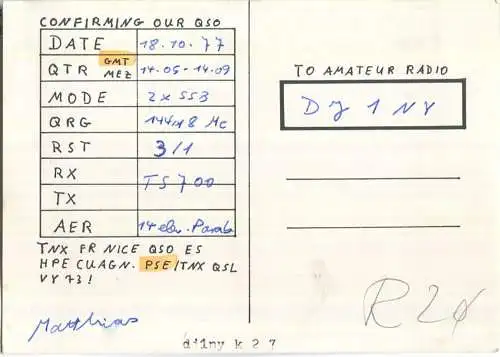 CONFIRMING OUR QSO
DATE 18.10.77
QTR GMT MEZ 14.05-14.09
MODE 2x SSB
QRG 144,18 Mc
RST 3/1
RX TS 700
TX
AER 14 ele. Parab.
TNX FR NICE QSO ES
HPE CUAGN. PSE/TNX QSL
VY 73!
Matthias
TO AMATEUR RADIO
DJ 1 NY
d'1ny k 2 7